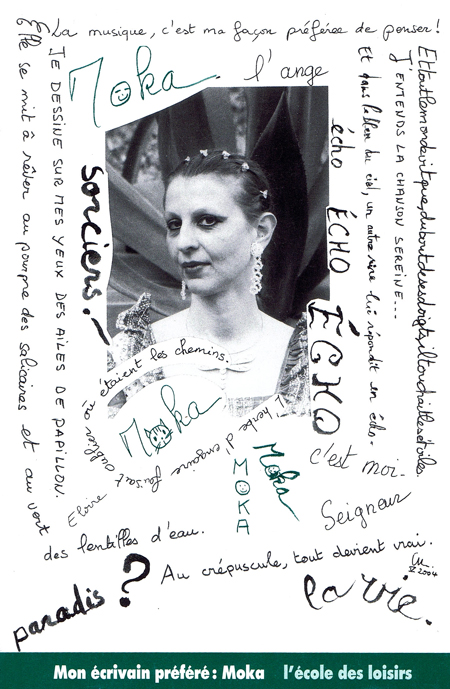 La musique, c'est ma façon préférée de penser !
Elle se mit à rêver au pourpre des salicaires et au vert
des lentilles d'eau.
JE DESSINE SUR MES YEUX DES AILES DE PAPILLON.
Moka
l'ange
sorciers !
écho ÉCHO ÉCHO
Et dans l'ablen du ciel, un autre rire lui répondit en écho.
J'ENTENDS LA CHANSON SEREINE...
Et tout le monde vit que, du bout de ses doigts, il touchait les étoiles.
L'herbe d'engaire faisait oublier où étaient les chemins.
Moka
Eloïse
MOKA
Moka
c'est moi.
Seigneur
Au crépuscule, tout devient vrai.
V 2004
paradis ?
la vie.
Mon écrivain préféré : Moka l'école des loisirs